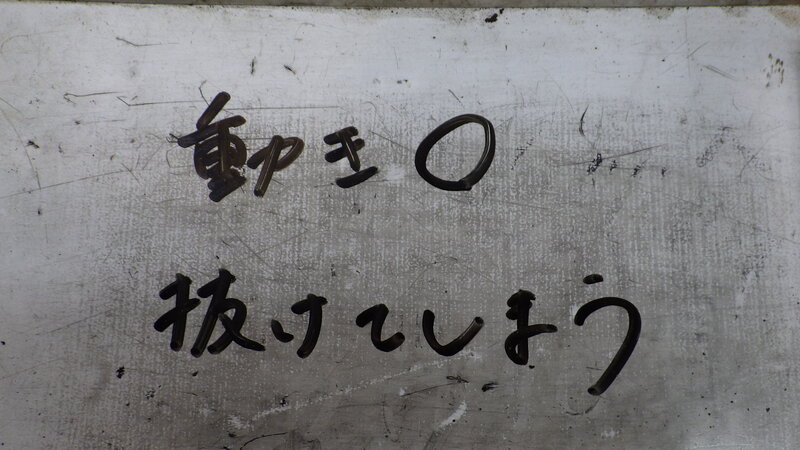 動き〇
抜けてしまう